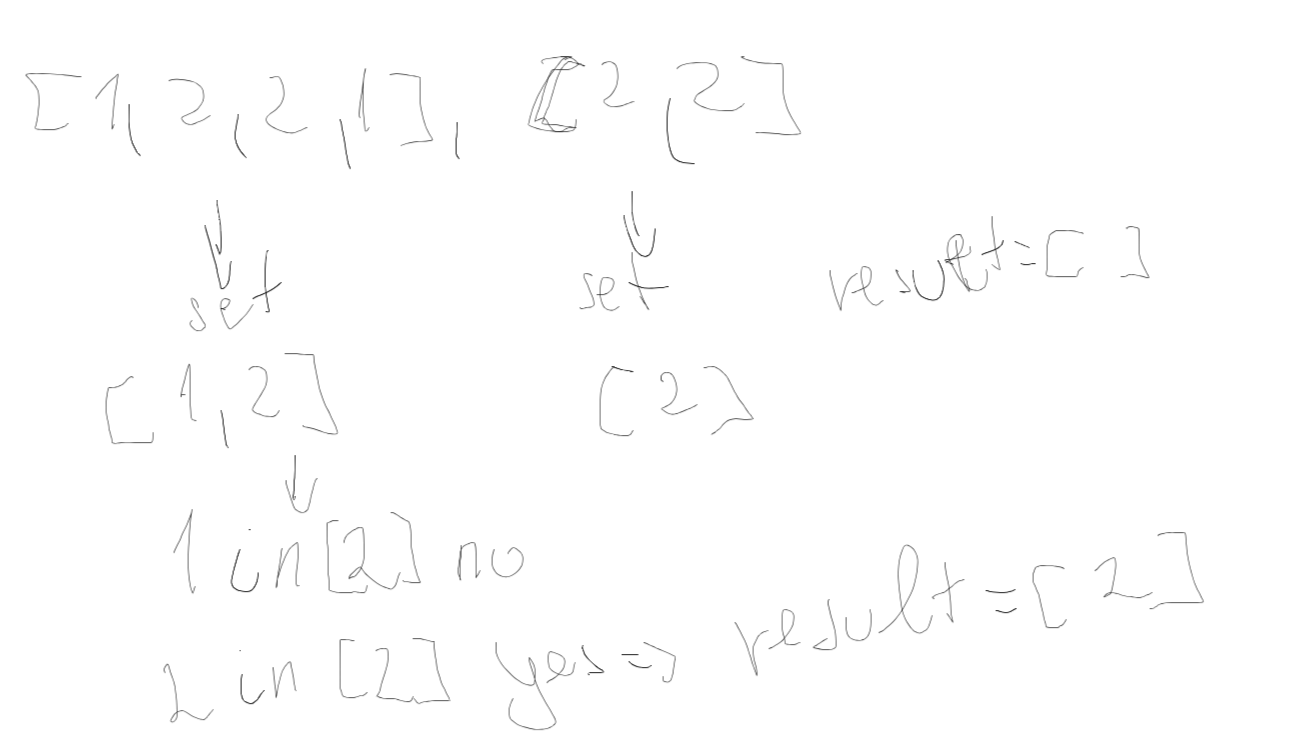 [1,2,2,1], [2,2]
set set result=[ ]
[1,2] [2]
1 in [2] no
2 in [2] yes => result=[2]